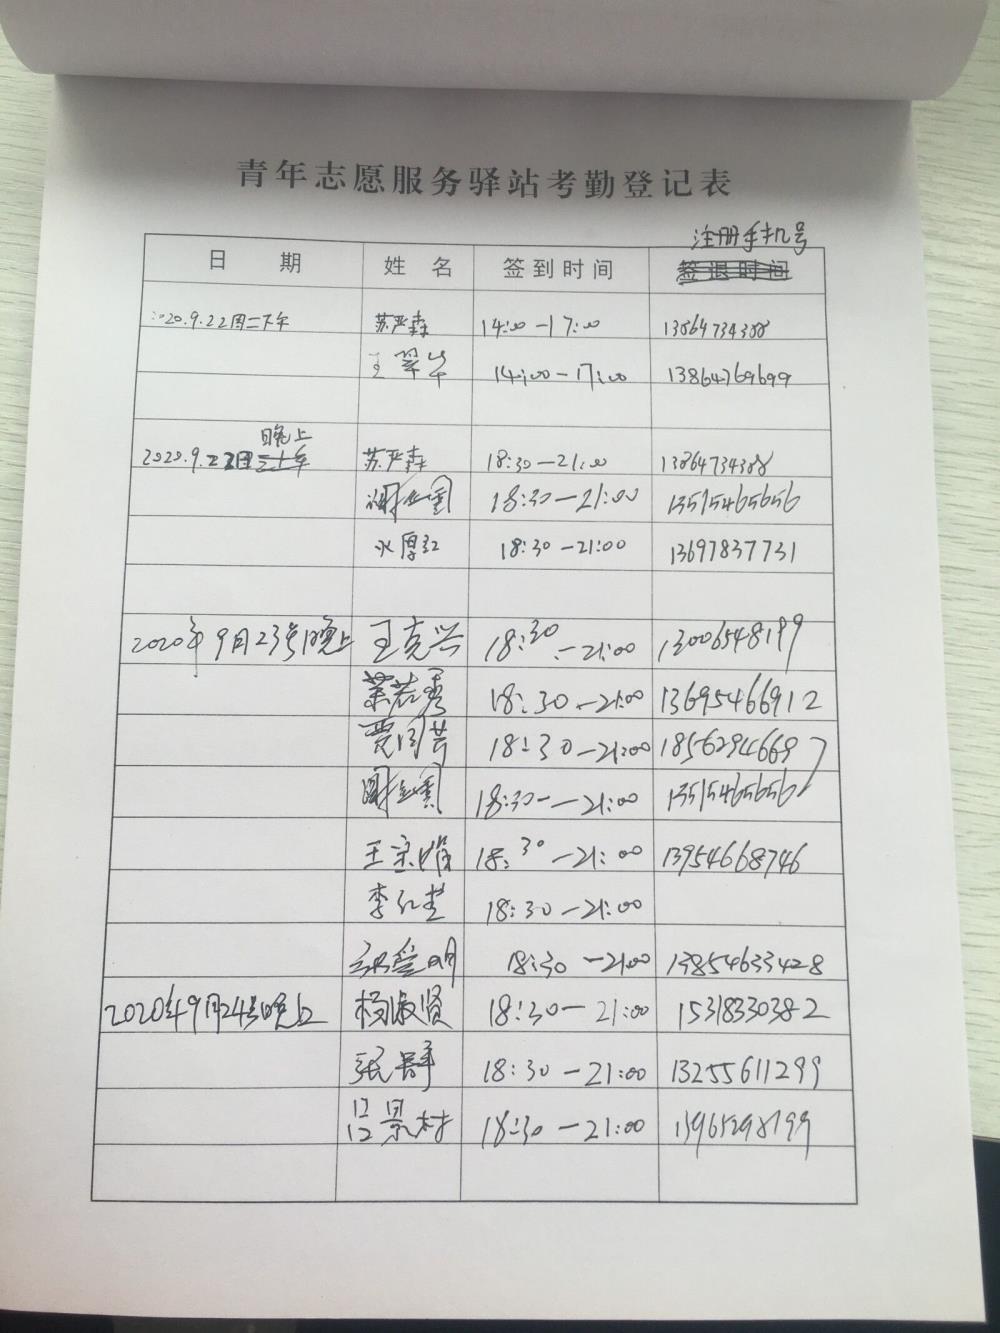 青年志愿服务驿站考勤登记表
注册手机号
日 期 姓 名 签到时间 签退时间
2020.9.22周二下午 苏严森 14:00-17:00 13864734388
王翠华 14:00-17:00 13864769699
晚上
2020.9.22周二下午 苏严森 18:30-21:00 13864734388
18:30-21:00 13515465656
18:30-21:00 13697837731
2020年9月23号晚上 王克兴 18:30-21:00 13006548199
18:30-21:00 13695466912
18:30-21:00 1856294669
18:30-21:00 13515465656
18:30-21:00 13954668746
18:30-21:00
18:30-21:00 13854633428
2020年9月24号晚上 杨淑贤 18:30-21:00 15318330382
张群 18:30-21:00 13255611299
18:30-21:00